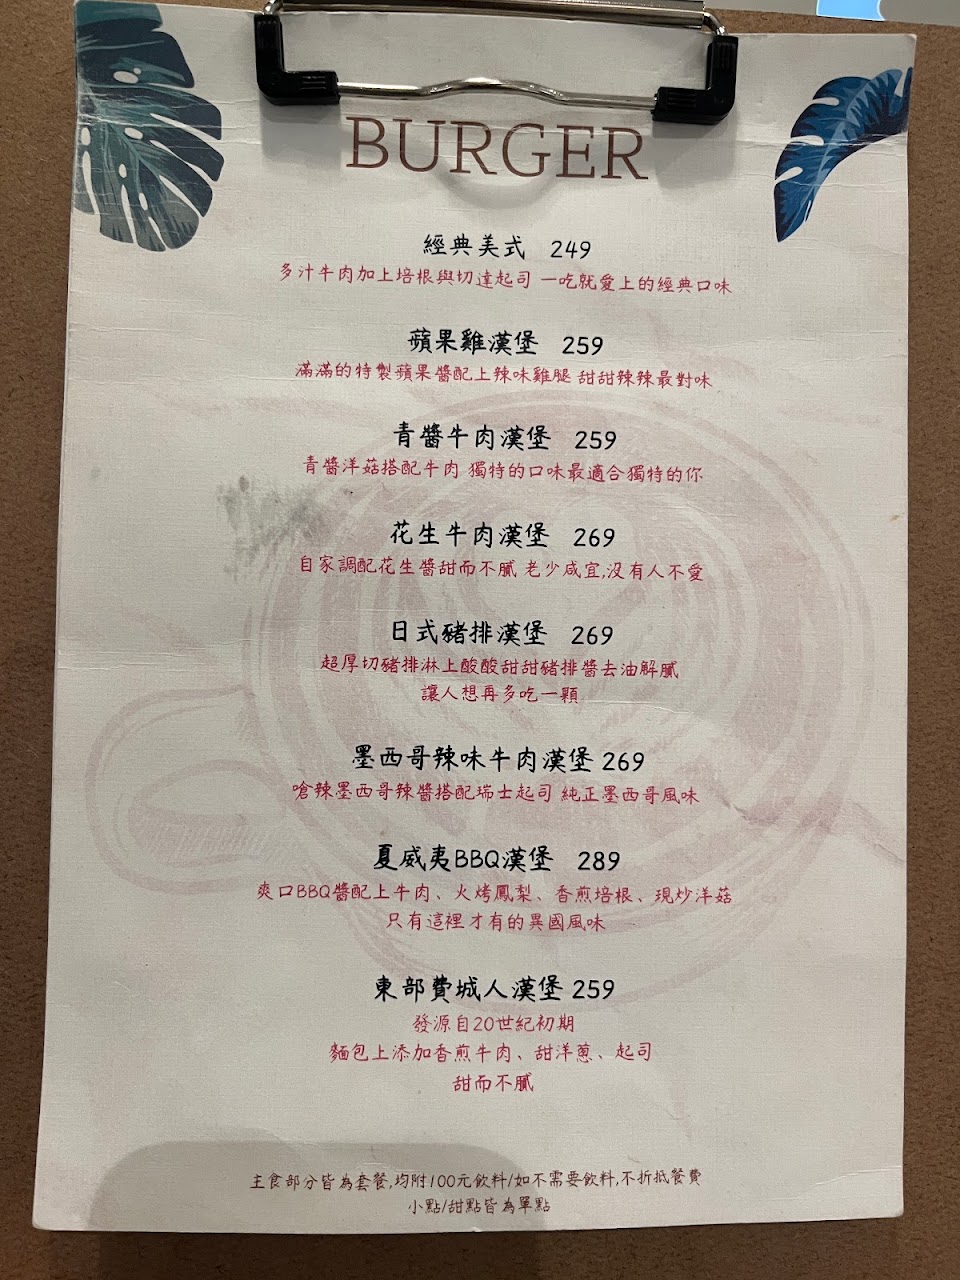 BURGER
經典美式 249
多汁牛肉加上培根與切達起司 一吃就愛上的經典口味
蘋果雞漢堡 259
滿滿的特製蘋果醬配上辣味雞腿 甜甜辣辣最對味
青醬牛肉漢堡 259
青醬洋菇搭配牛肉 獨特的口味最適合獨特的你
花生牛肉漢堡 269
自家調配花生醬甜而不膩 老少咸宜,沒有人不愛
日式豬排漢堡 269
超厚切豬排淋上酸酸甜甜豬排醬去油解膩
讓人想再多吃一顆
墨西哥辣味牛肉漢堡 269
嗆辣墨西哥辣醬搭配瑞士起司 純正墨西哥風味
夏威夷BBQ漢堡 289
爽口BBQ醬配上牛肉、火烤鳳梨、香煎培根、現炒洋菇
只有這裡才有的異國風味
東部費城人漢堡 259
發源自20世紀初期
麵包上添加香煎牛肉、甜洋蔥、起司
甜而不膩
主食部分皆為套餐,均附100元飲料/如不需要飲料,不折抵餐費
小點/甜點皆為單點